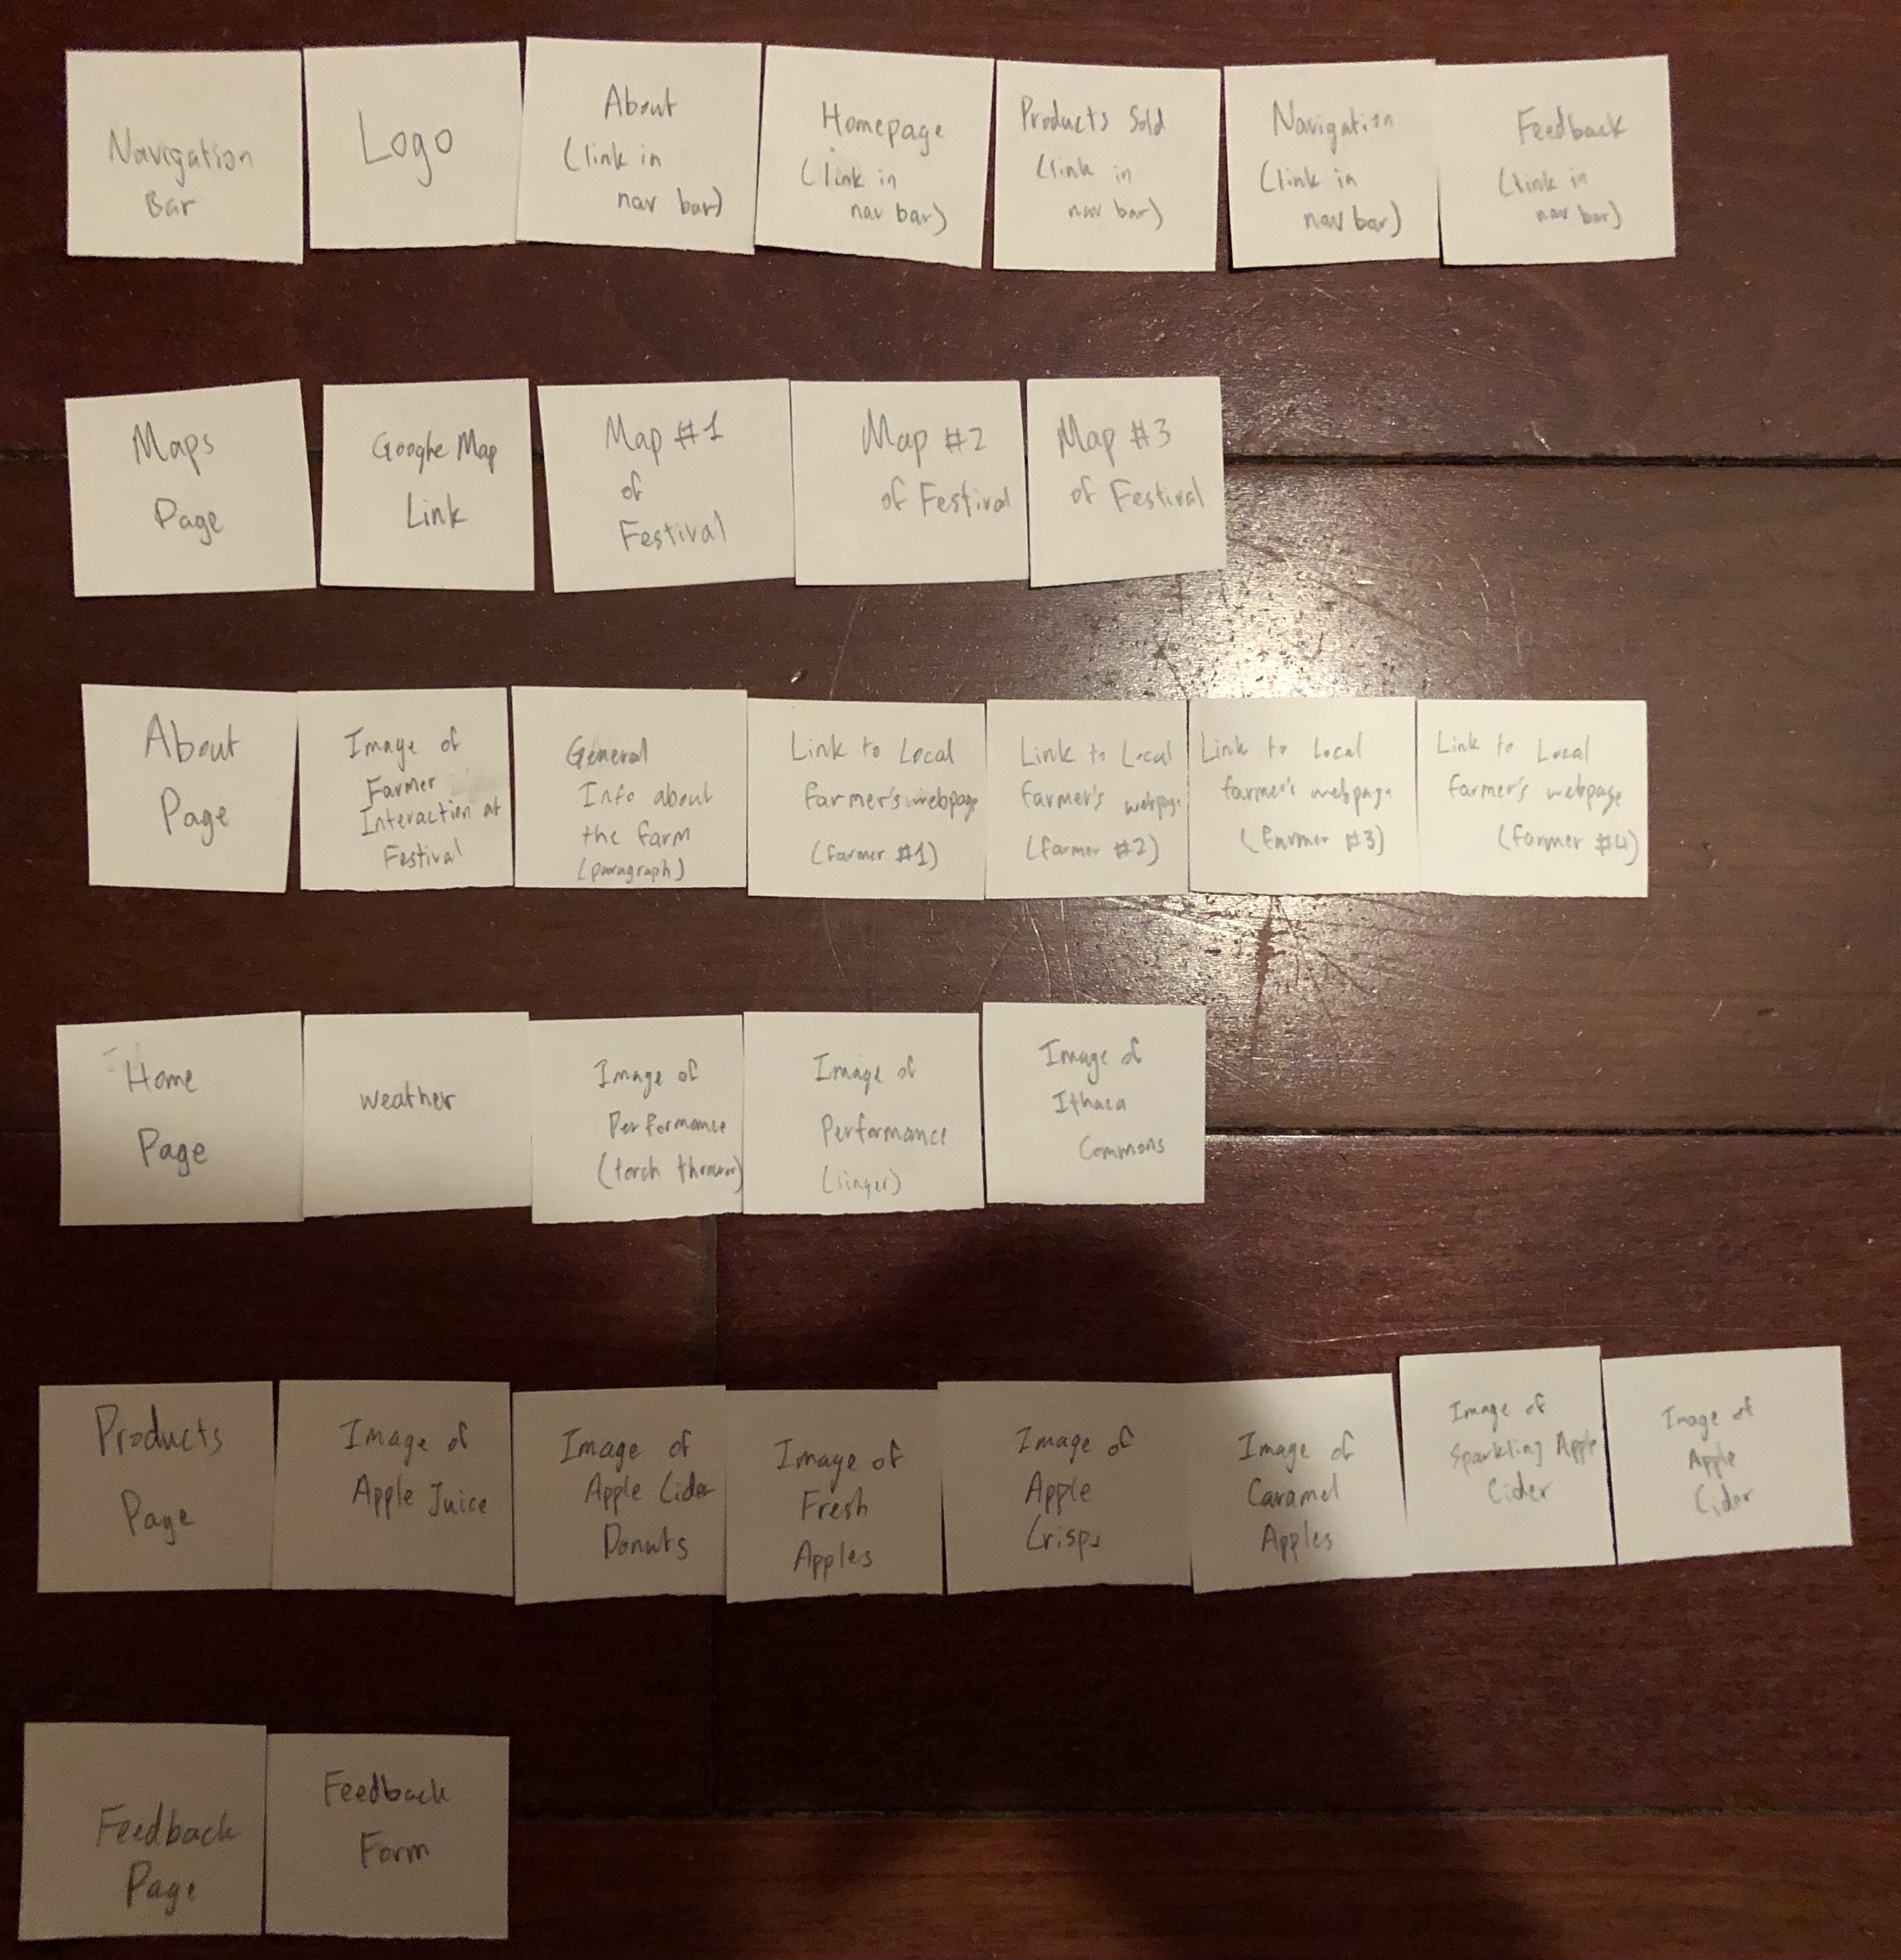 Navigation
Bar
Logo
About
(link in
nav bar)
Homepage
(link in
nav bar)
Products Sold
(link in
nav bar)
Navigation
(link in
nav bar)
Feedback
(link in
nav bar)
Maps
Page
Google Map
Link
Map #1
of
Festival
Map #2
of Festival
Map #3
of Festival
About
Page
Image of
Farmer
Interaction at
Festival
General
Info about
the farm
(paragraph)
Link to Local
farmer's webpage
(farmer #1)
Link to Local
farmer's webpage
(farmer #2)
Link to Local
farmer's webpage
(farmer #3)
Link to Local
farmer's webpage
(farmer #4)
Home
Page
weather
Image of
Performance
(torch thrower)
Image of
Performance
(singer)
Image of
Ithaca
Commons
Products
Page
Image of
Apple Juice
Image of
Apple Cider
Donuts
Image of
Fresh
Apples
Image of
Apple
Crisps
Image of
Caramel
Apples
Image of
Sparkling Apple
Cider
Image of
Apple
Cider
Feedback
Page
Feedback
Form